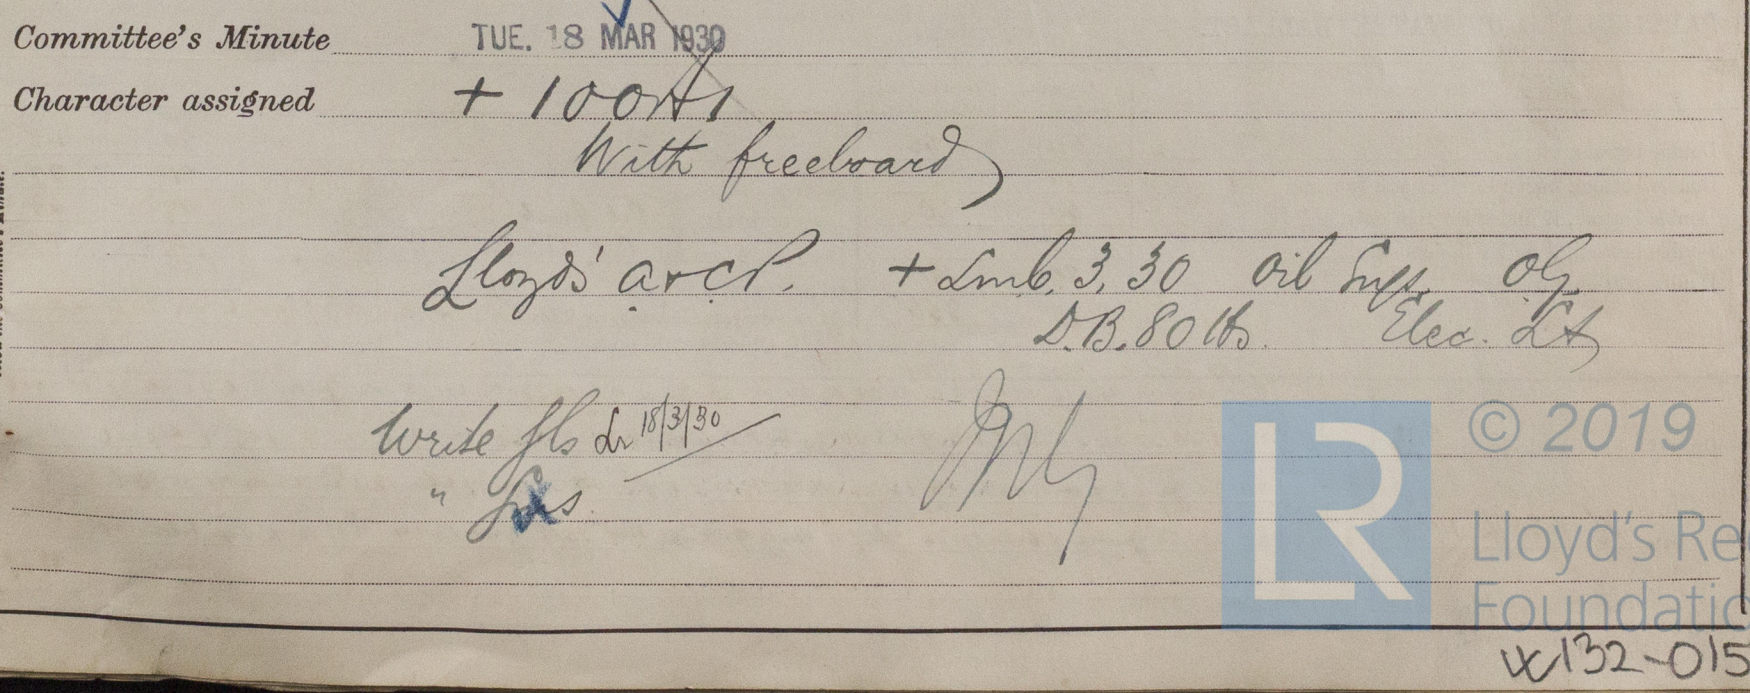 Committee's Minute TUE. 18 MAR 1930
Character assigned + 100A1
With freeboard
Lloyd's A & CP. + LMC. 3,30 Oil Eng. OG
D.B. 80 lbs. Elec. Lt
Write Gls Lr 18/3/30
"
© 2019
LR
Lloyd's Re
Foundatio
W132-015